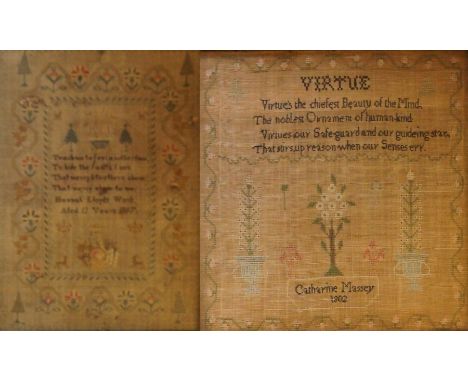 Teach me to feel another's woe
To hide the fault I see
That mercy I to others show
That mercy show to me
Hannah Lloyd's Work
Aged 12 Years
VIRTUE
Virtue's the chiefest Beauty of the Mind,
The noblest Ornament of human-kind
Virtues our Safe-guard and our guideing star,
That stirs up reason when our Senses err.
Catharine Massey
1802